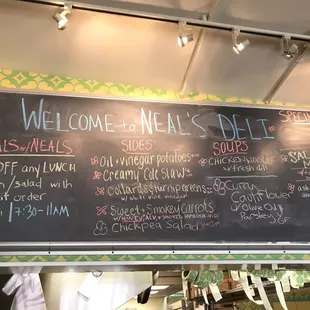 WELCOME to NEAL'S DELI
ALS w/ NEALS
OFF any LUNCH
n/salad with
it order
7:30-11AM
SIDES
Oil + vinegar potatoes
Creamy Cole Slaw
Collards & turnip greens
w/ white wine vinegar
Sweet + Smokey Carrots
Chickpea Salad
SOUPS
CHICKEN
w/ fresh dill
Curry
Cauliflower
w/ Olive Oil
Parsley
SPECIA
SAL
ask